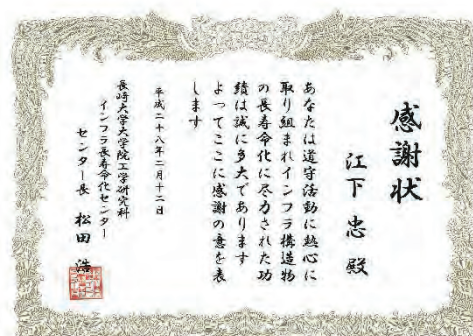 感謝状
江下忠殿
あなたは道守活動に熱心に
取り組まれインフラ構造物
の長寿命化に尽力された功
績は誠に多大であります
よってここに感謝の意を表
します
平成二十八年二月十二日
長崎大学大学院工学研究科
インフラ長寿命化センター
センター長 松田浩